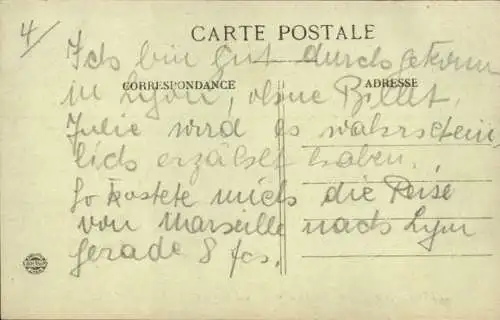 4/
CARTE POSTALE
Ich bin gut durchgekomm
CORRESPONDANCE
ADRESSE
in Lyon, ohne Billet.
Julie wird es wahrschein
lich erzählt haben.
So kostete mich die Reise
von Marseille nach Lyon
gerade 8 fcs.